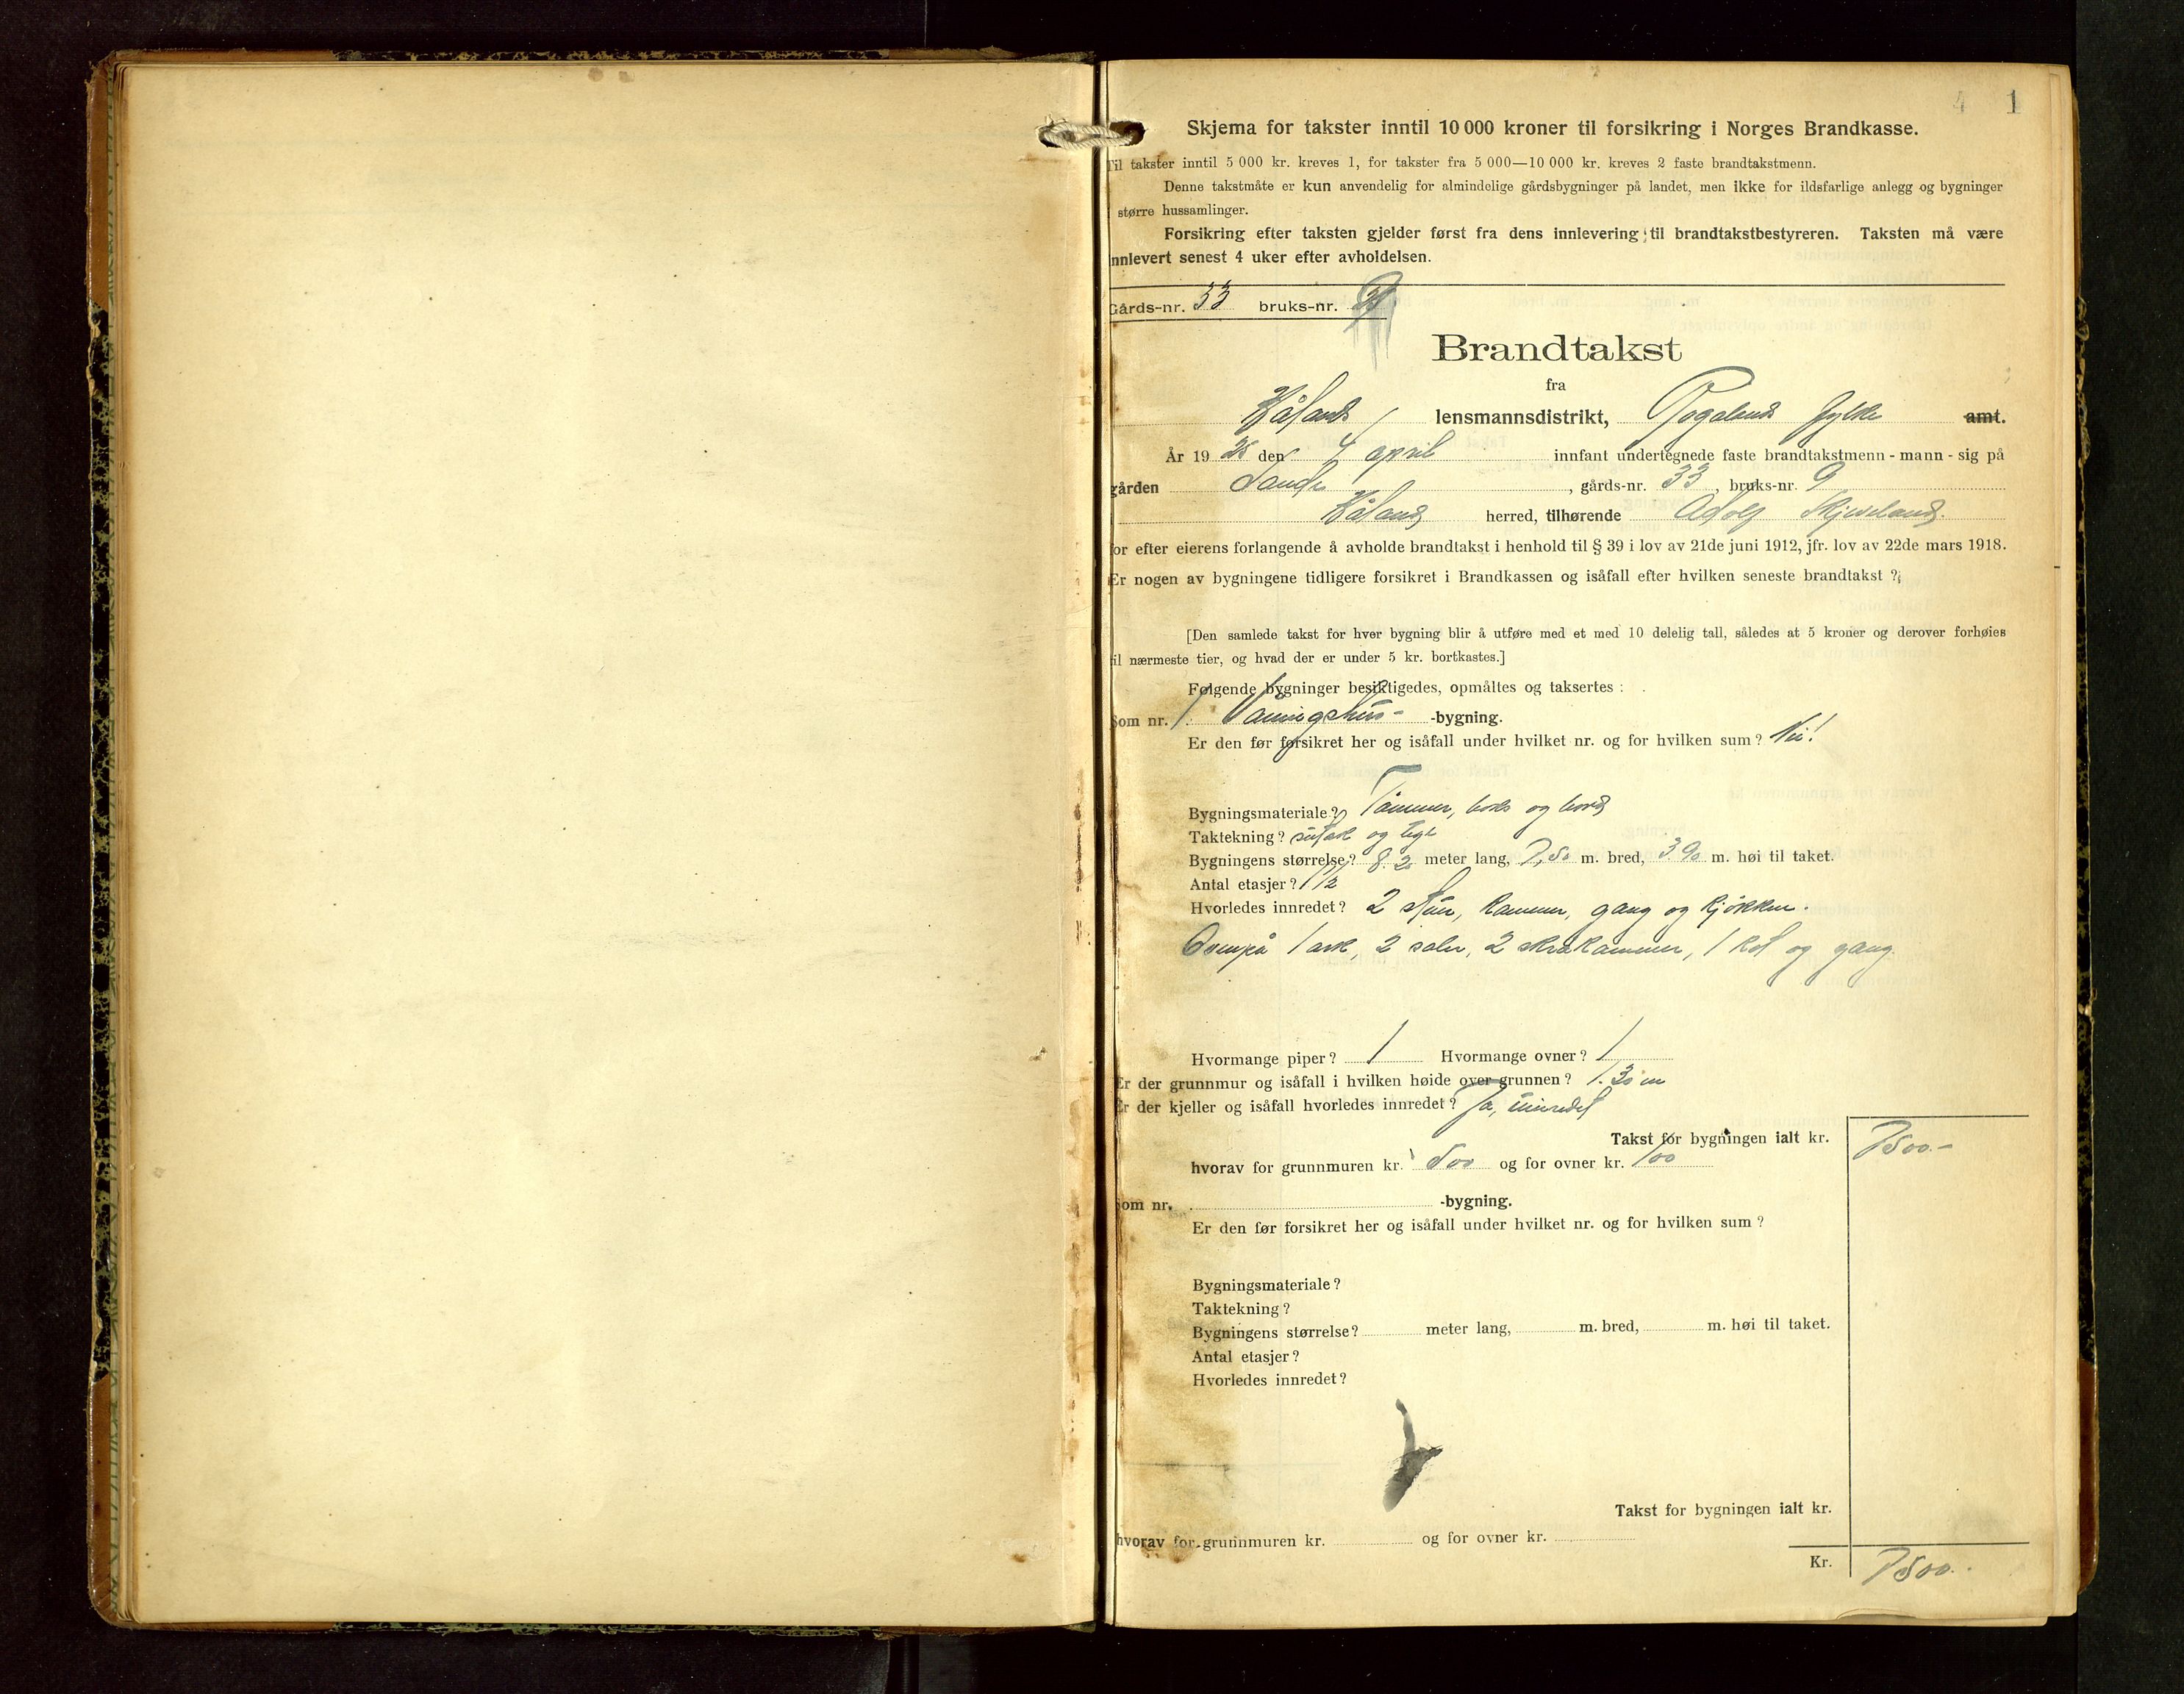 4 1
Skjema for takster inntil 10 000 kroner til forsikring i Norges Brandkasse.
Til takster inntil 5 000 kr. kreves 1, for takster fra 5 000—10 000 kr. kreves 2 faste brandtakstmenn.
Denne takstmåte er kun anvendelig for almindelige gårdsbygninger på landet, men ikke for ildsfarlige anlegg og bygninger
større hussamlinger.
Forsikring efter taksten gjelder først fra dens innlevering til brandtakstbestyreren. Taksten må være
nnlevert senest 4 uker efter avholdelsen.
Gårds-nr. 33 bruks-nr.
Brandtakst
fra
Håland lensmannsdistrikt, Rogaland fylke amt.
År 19 25 den 4 april innfant undertegnede faste brandtakstmenn - mann - sig på
gården Sande, gårds-nr. 33, bruks-nr. 9
Håland herred, tilhørende Adolf Skjeveland.
for efter eierens forlangende å avholde brandtakst i henhold til § 39 i lov av 21de juni 1912, jfr. lov av 22de mars 1918.
Er nogen av bygningene tidligere forsikret i Brandkassen og isåfall efter hvilken seneste brandtakst ?
[Den samlede takst for hver bygning blir å utføre med et med 10 delelig tall, således at 5 kroner og derover forhøies
til nærmeste tier, og hvad der er under 5 kr. bortkastes.]
Følgende bygninger besiktigedes, opmåltes og taksertes :
Som nr. 1 Våningshus- -bygning.
Er den før forsikret her og isåfall under hvilket nr. og for hvilken sum ? Nei!
Bygningsmateriale ? Tømmer, og bord
Taktekning ? sutak og tegl
Bygningens størrelse ? 8.20 meter lang, 7,50 m. bred, 3.90 m. høi til taket.
Antal etasjer ? 1 1/2
Hvorledes innredet ? 2 stuer, kammer, gang og kjøkken.
Ovenpå 1 ark, 2 saler, 2 skråkammer, 1 kot og gang.
Hvormange piper ? 1 Hvormange ovner ? 1
Er der grunnmur og isåfall i hvilken høide over grunnen ? 1.30 m
Er der kjeller og isåfall hvorledes innredet ? Ja, uinredet
Takst for bygningen ialt kr. 7500.-
hvorav for grunnmuren kr. 500 og for ovner kr. 100
Som nr. -bygning.
Er den før forsikret her og isåfall under hvilket nr. og for hvilken sum ?
Bygningsmateriale ?
Taktekning ?
Bygningens størrelse ? meter lang, m. bred, m. høi til taket.
Antal etasjer ?
Hvorledes innredet ?
Takst for bygningen ialt kr.
hvorav for grunnmuren kr. og for ovner kr.
Kr. 7500.-